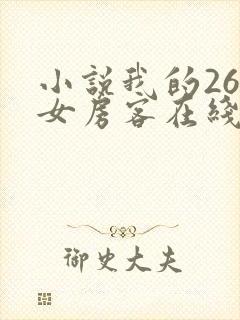 小説我的26
女房客在綫
御史大夫